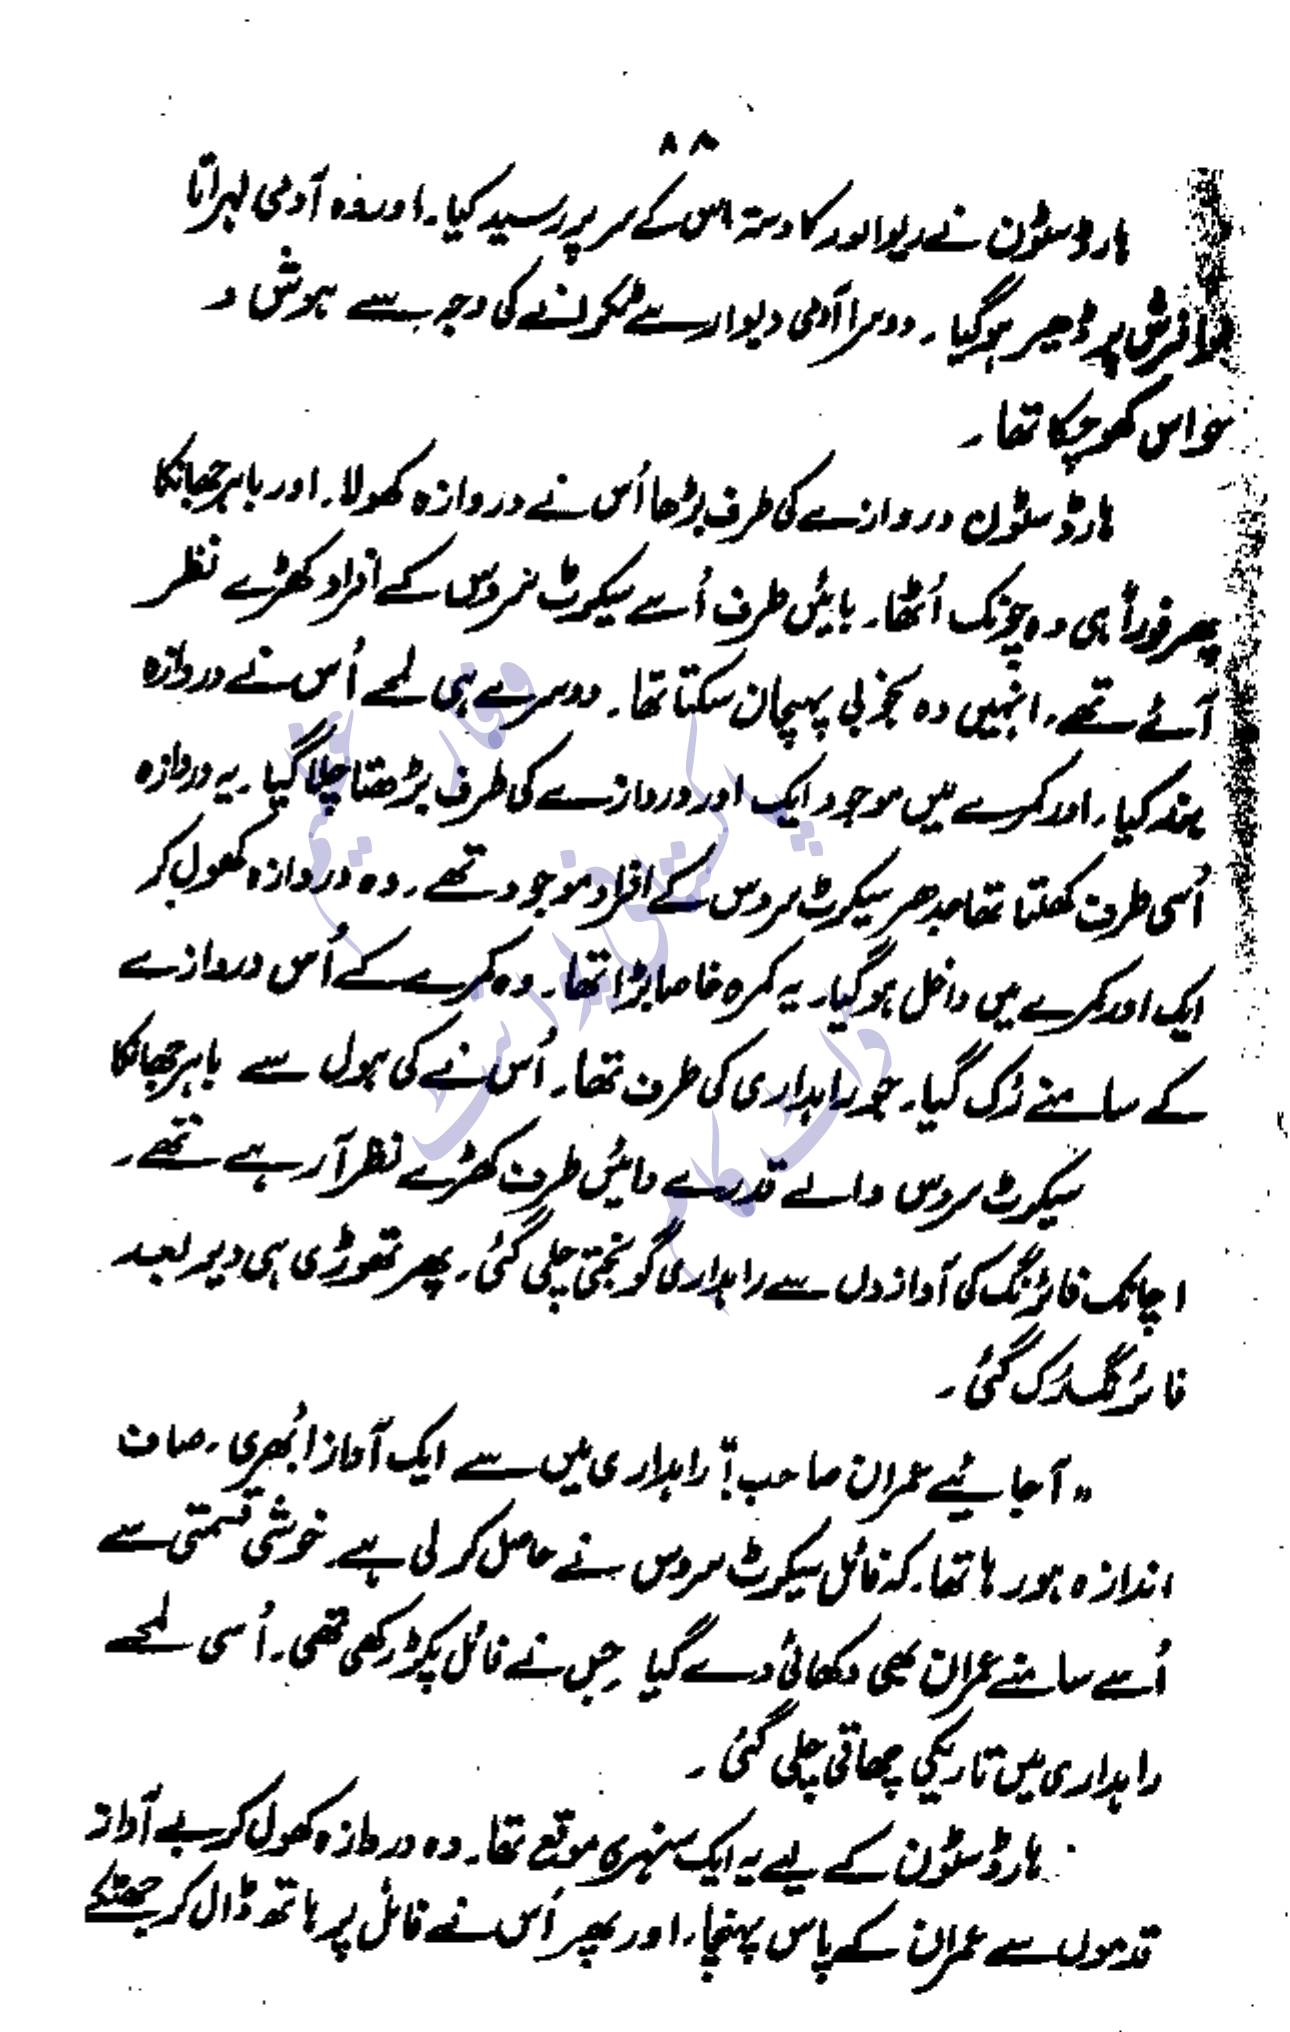 ۸۸
ہارڈ سٹون نے ریوالور کا دستہ اس کے سر پر رسید کیا۔ اور وہ آدمی لہراتا
ہوا فرش پر ڈھیر ہو گیا۔ دوسرا آدمی دیوار سے ٹکرانے کی وجہ سے ہوش و
حواس کھو چکا تھا۔
ہارڈ سٹون دروازے کی طرف بڑھا اُس نے دروازہ کھولا۔ اور باہر جھانکا
پھر فوراً ہی وہ چونک اُٹھا۔ بائیں طرف اُسے سیکرٹ سروس کے افراد کھڑے نظر
آئے تھے۔ انہیں وہ بخوبی پہچان سکتا تھا۔ دوسرے ہی لمحے اُس نے دروازہ
بند کیا۔ اور کمرے میں موجود ایک اور دروازے کی طرف بڑھتا چلا گیا۔ یہ دروازہ
اُسی طرف کھلتا تھا جدھر سیکرٹ سروس کے افراد موجود تھے۔ وہ دروازہ کھول کر
ایک اور کمرے میں داخل ہو گیا۔ یہ کمرہ خاصا بڑا تھا۔ وہ کمرے کے اُس دروازے
کے سامنے رُک گیا۔ جو راہداری کی طرف تھا۔ اُس نے کی ہول سے باہر جھانکا
سیکرٹ سروس والے قدرے دائیں طرف کھڑے نظر آ رہے تھے۔
اچانک فائرنگ کی آوازوں سے راہداری گونجتی چلی گئی۔ پھر تھوڑی ہی دیر بعد
فائرنگ رُک گئی۔
"آ جائیے عمران صاحب!" راہداری میں سے ایک آواز اُبھری۔ صاف
اندازہ ہو رہا تھا۔ کہ فائل سیکرٹ سروس نے حاصل کر لی ہے۔ خوشی قسمتی سے
اُسے سامنے عمران بھی دکھائی دے گیا جس نے فائل پکڑ رکھی تھی۔ اُسی لمحے
راہداری میں تاریکی چھاتی چلی گئی۔
ہارڈ سٹون کے لیے یہ ایک سنہری موقع تھا۔ وہ دروازہ کھول کر بے آواز
قدموں سے عمران کے پاس پہنچا۔ اور پھر اُس نے فائل پر ہاتھ ڈال کر جھٹکے